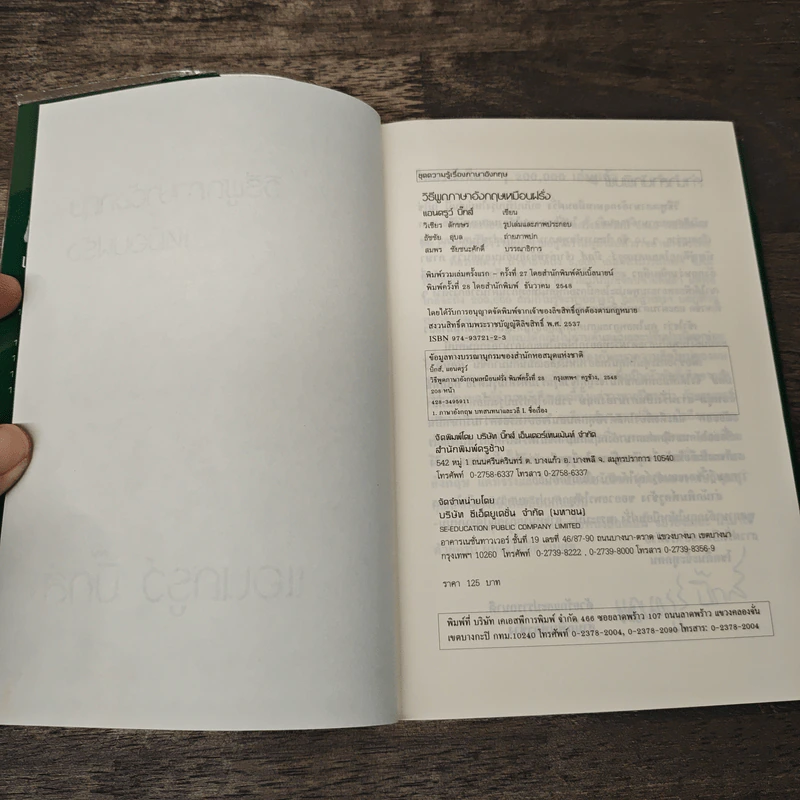 ชุดความรู้เรื่องภาษาอังกฤษ
วิธีพูดภาษาอังกฤษเหมือนฝรั่ง
แอนดรูว์ บิ๊กส์ เขียน
วิเชียร ลักขษร รูปเล่มและภาพประกอบ
ธัชชัย อุบล ถ่ายภาพปก
สมพร ชัยชนะศักดิ์ บรรณาธิการ
พิมพ์รวมเล่มครั้งแรก - ครั้งที่ 27 โดยสำนักพิมพ์ดับเบิ้ลนายน์
พิมพ์ครั้งที่ 28 โดยสำนักพิมพ์ ธันวาคม 2548
โดยได้รับการอนุญาตจัดพิมพ์จากเจ้าของลิขสิทธิ์ถูกต้องตามกฎหมาย
สงวนสิทธิ์ตามพระราชบัญญัติลิขสิทธิ์ พ.ศ. 2537
ISBN 974-93721-2-3
ข้อมูลทางบรรณานุกรมของสำนักหอสมุดแห่งชาติ
บิ๊กส์, แอนดรูว์
วิธีพูดภาษาอังกฤษเหมือนฝรั่ง พิมพ์ครั้งที่ 28 กรุงเทพฯ ครูช้าง, 2548
208 หน้า
428-3495911
1. ภาษาอังกฤษ บทสนทนาและวลี I. ชื่อเรื่อง
จัดพิมพ์โดย บริษัท บิ๊กส์ เอ็นเตอร์เทนเม้นท์ จำกัด
สำนักพิมพ์ครูช้าง
542 หมู่ 1 ถนนศรีนครินทร์ ต. บางแก้ว อ. บางพลี จ. สมุทรปราการ 10540
โทรศัพท์ 0-2758-6337 โทรสาร 0-2758-6337
จัดจำหน่ายโดย
บริษัท ซีเอ็ดยูเคชั่น จำกัด (มหาชน)
SE-EDUCATION PUBLIC COMPANY LIMITED
อาคารเนชั่นทาวเวอร์ ชั้นที่ 19 เลขที่ 46/87-90 ถนนบางนา-ตราด แขวงบางนา เขตบางนา
กรุงเทพฯ 10260 โทรศัพท์ 0-2739-8222 , 0-2739-8000 โทรสาร 0-2739-8356-9
ราคา 125 บาท
พิมพ์ที่ บริษัท เคเอสพีการพิมพ์ จำกัด 466 ซอยลาดพร้าว 107 ถนนลาดพร้าว แขวงคลองจั่น
เขตบางกะปิ กทม.10240 โทรศัพท์ 0-2378-2004, 0-2378-2090 โทรสาร: 0-2378-2004